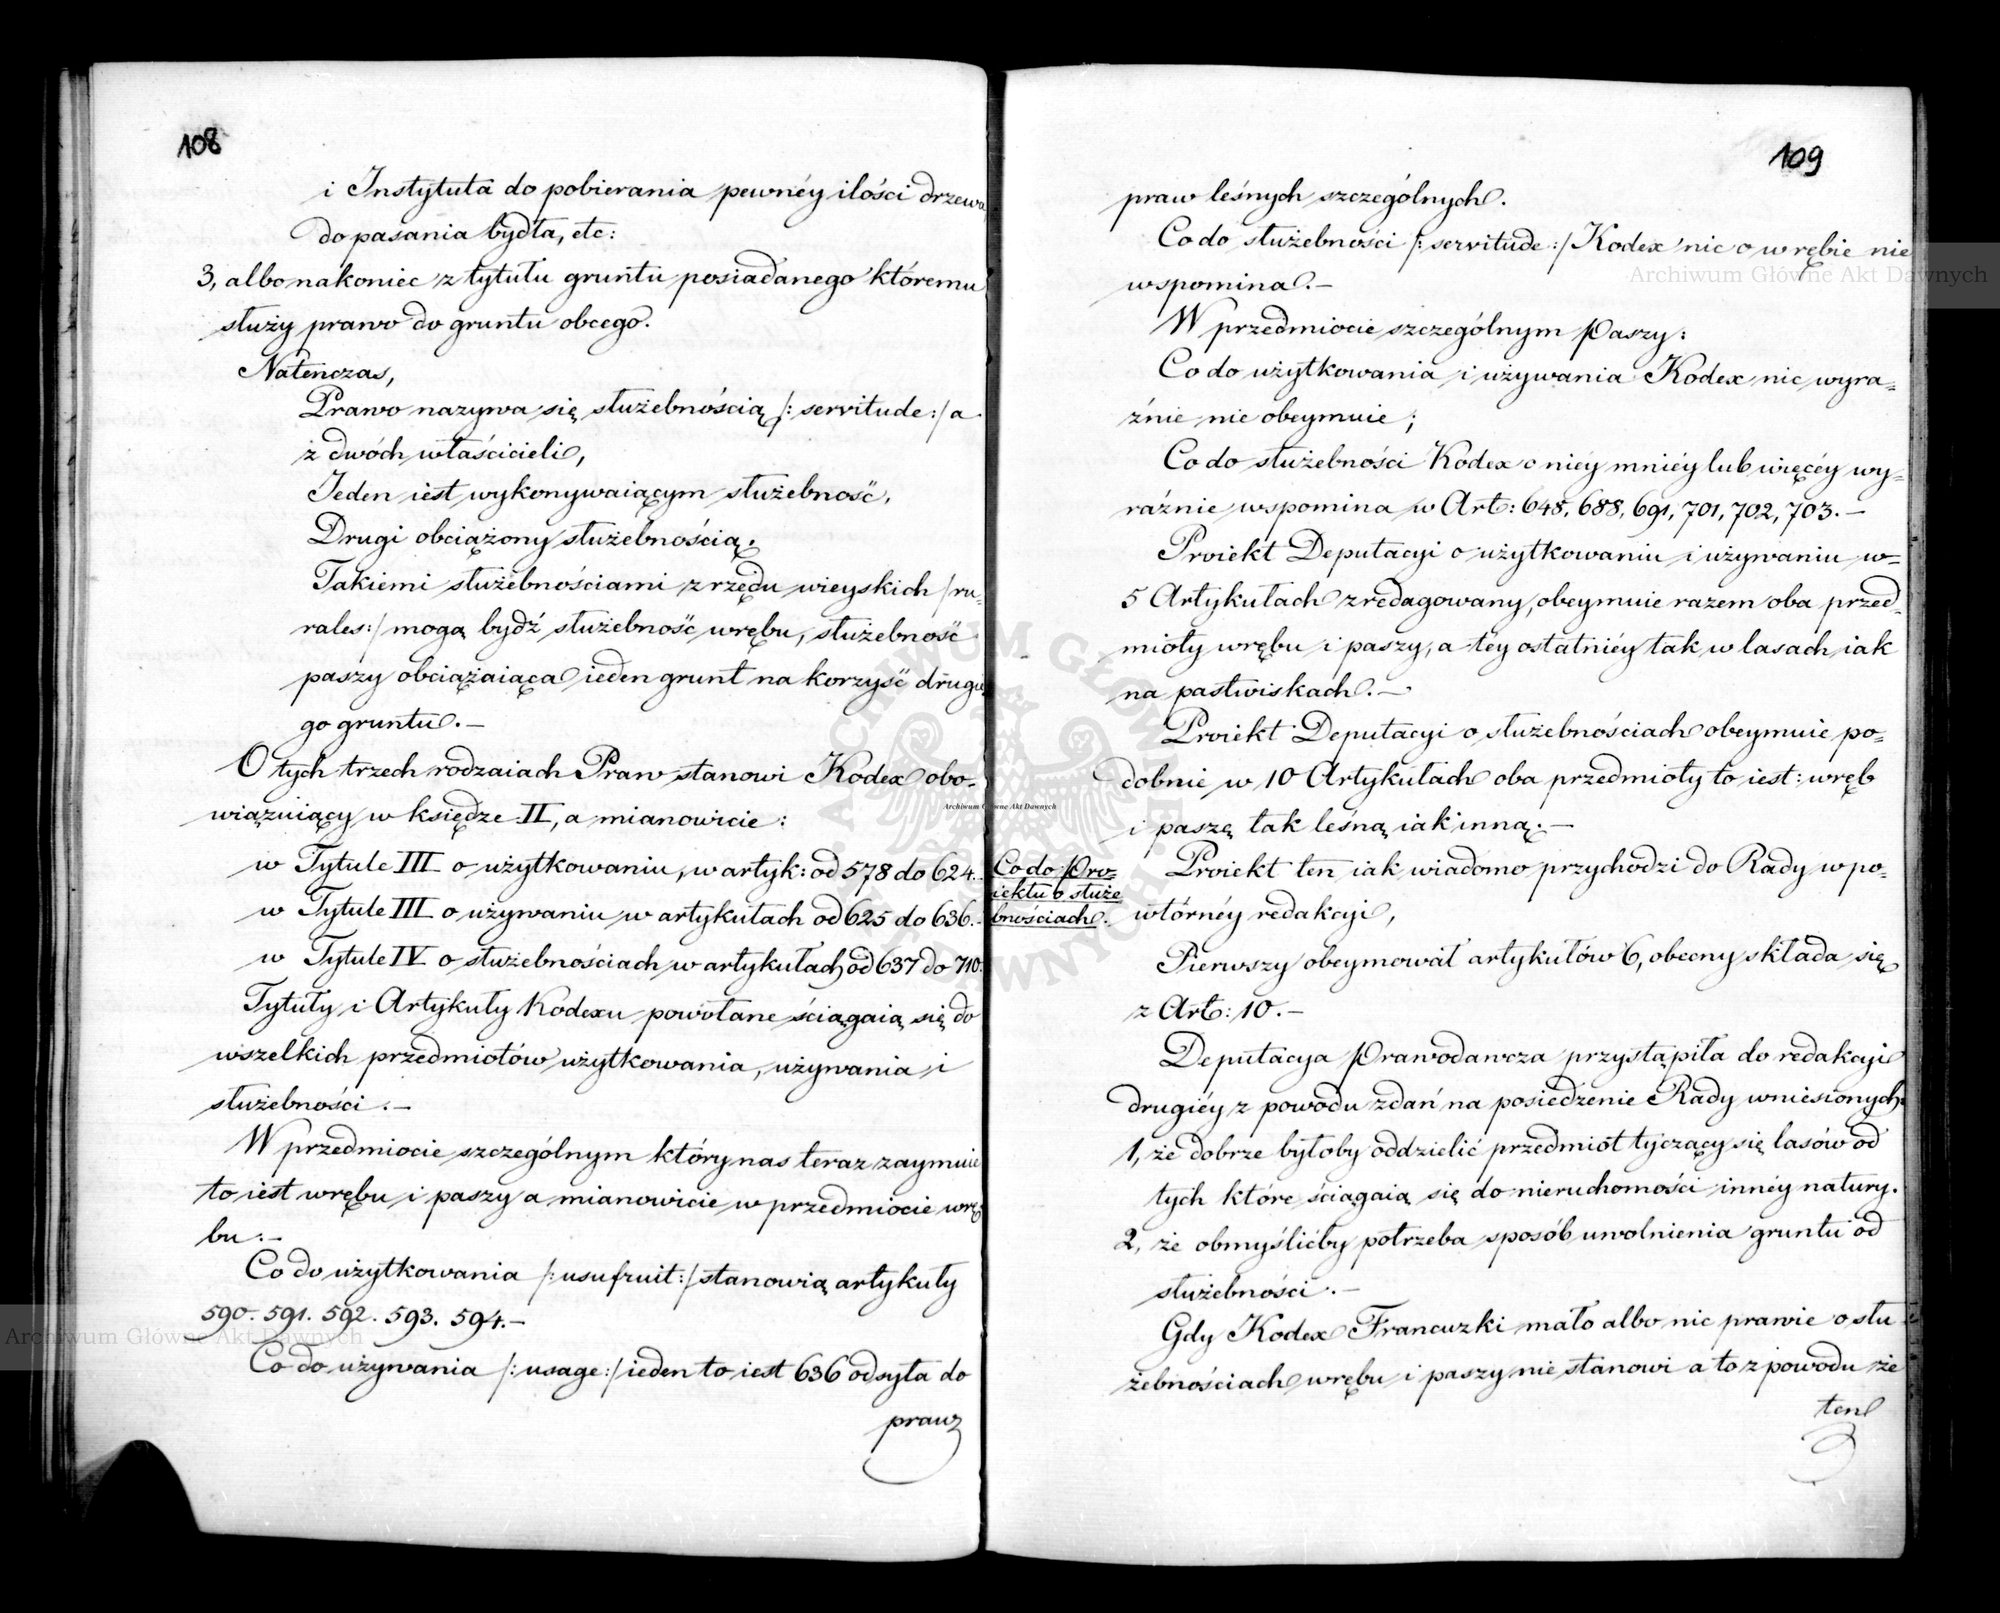 108
i Instytuta do pobierania pewnéy ilości drzewa
do pasania bydła, etc:
3, albo nakoniec z tytułu gruntu posiadanego któremu
służy prawo do gruntu obcego.
Natenczas,
Prawo nazywa się służebnością /: servitude :/ a
z dwóch właścicieli,
Jeden iest wykonywaiącym służebność,
Drugi obciążony służebnością.
Takiemi służebnościami z rzędu wieyskich /ru-
rales:/ mogą bydź służebność wrębu, służebność
paszy obciążaiąca ieden grunt na korzyść drugie
go gruntu. –
O tych trzech rodzaiach Praw stanowi Kodex obo-
wiązuiący w księdze II, a mianowicie:
w Tytule III o użytkowaniu, w artyk: od 578 do 624.
w Tytule III o używaniu w artykułach od 625 do 636.
w Tytule IV o służebnościach w artykułach od 637 do 710.
Tytuły i Artykuły Kodexu powołane ściągaią się do
wszelkich przedmiotów użytkowania, używania i
służebności. –
W przedmiocie szczególnym który nas teraz zaymuie
to iest wrębu i paszy a mianowicie w przedmiocie wrę
bu. –
Co do użytkowania /: usufruit :/ stanowią artykuły
590. 591. 592. 593. 594. –
Co do używania /: usage :/ ieden to iest 636 odsyła do
praw
109
praw leśnych szczególnych.
Co do służebności /: servitude :/ Kodex nic o wrębie nie
wspomina. –
W przedmiocie szczególnym Paszy:
Co do użytkowania i używania Kodex nic wyra-
źnie nie obeymuie;
Co do służebności Kodex o niéy mniéy lub więcéy wy-
raźnie wspomina w Art: 648, 688, 691, 701, 702, 703. –
Proiekt Deputacyi o użytkowaniu i używaniu w-
5 Artykułach zredagowany, obeymuie razem oba przed-
mioty wrębu i paszy, a téy ostatniéy tak w lasach iak
na pastwiskach. –
Proiekt Deputacyi o służebnościach obeymuie po-
dobnie w 10 Artykułach oba przedmioty to iest: wręb
i paszę tak leśną iak inną. –
Co do Pro-
iektu o służe
bnościach.
Proiekt ten iak wiadomo przychodzi do Rady w po-
wtórnéy redakcyi,
Pierwszy obeymował artykułów 6, obecny składa się
z Art: 10. –
Deputacya Prawodawcza przystąpiła do redakcyi
drugiéy z powodu zdań na posiedzenie Rady wniesionych:
1, że dobrze byłoby oddzielić przedmiot tyczący się lasów od
tych które ściągaią się do nieruchomości innéy natury.
2, że obmyślićby potrzeba sposób uwolnienia gruntu od
służebności. –
Gdy Kodex Francuzki mało albo nic prawie o słu
żebnościach wrębu i paszy nie stanowi a to z powodu że
ten
Archiwum Główne Akt Dawnych
Archiwum Główne Akt Dawnych
Archiwum Główne Akt Dawnych
ARCHIWUM GŁÓWNE AKT DAWNYCH